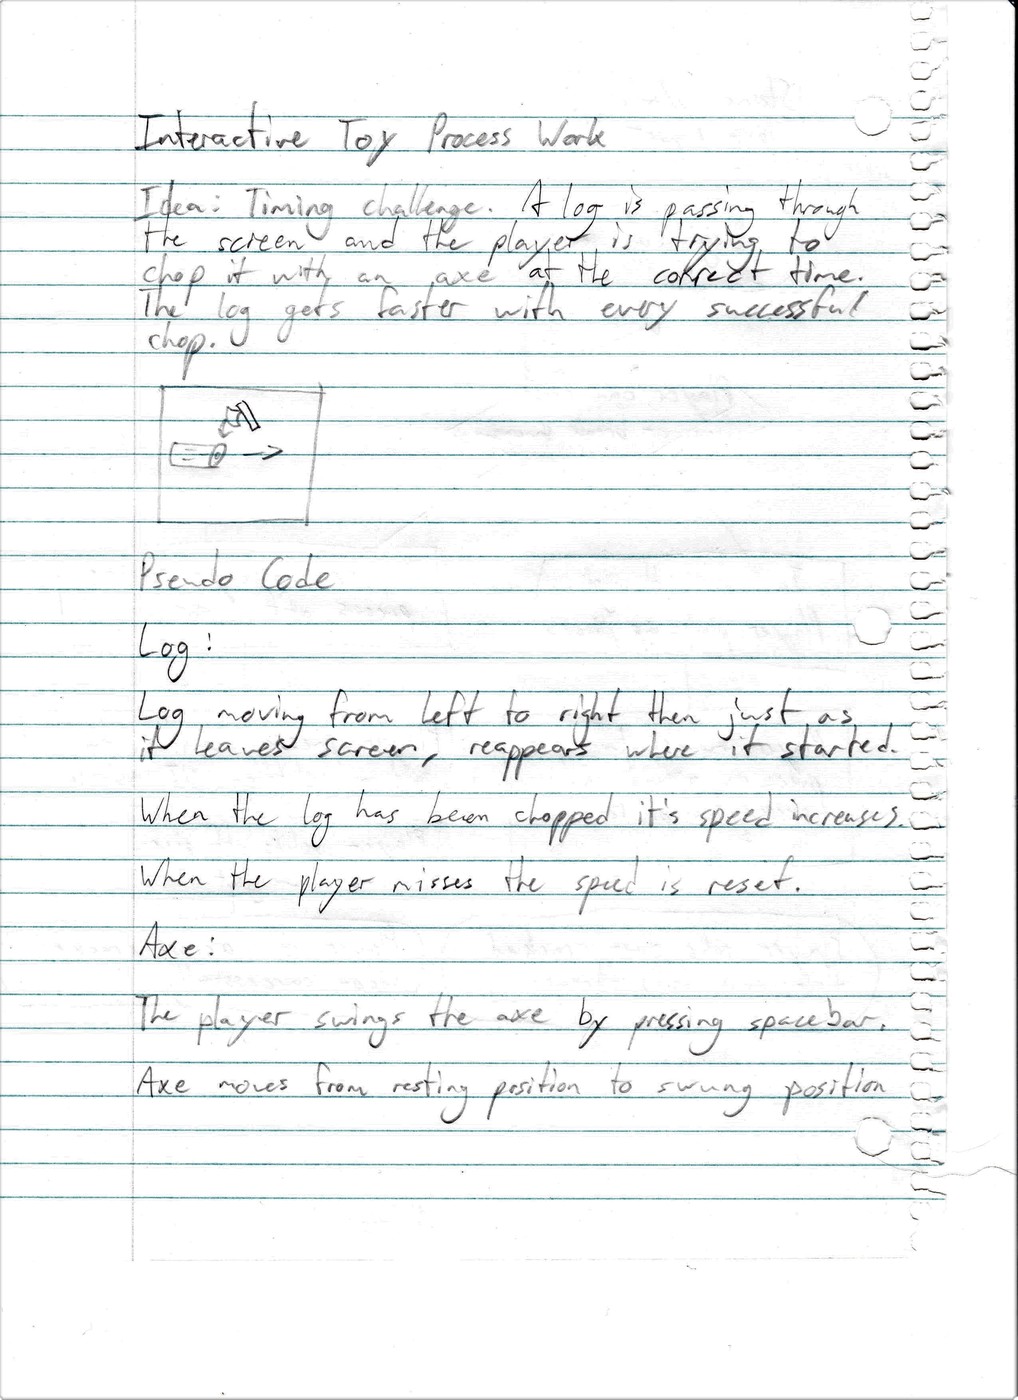 Interactive Toy Process Work
Idea: Timing challenge. A log is passing through
the screen and the player is trying to
chop it with an axe at the correct time.
The log gets faster with every successful
chop.
Pseudo Code
Log:
Log moving from left to right then just as
it leaves screen, reappears where it started.
When the log has been chopped it's speed increases.
When the player misses the speed is reset.
Axe:
The player swings the axe by pressing spacebar.
Axe moves from resting position to swung position